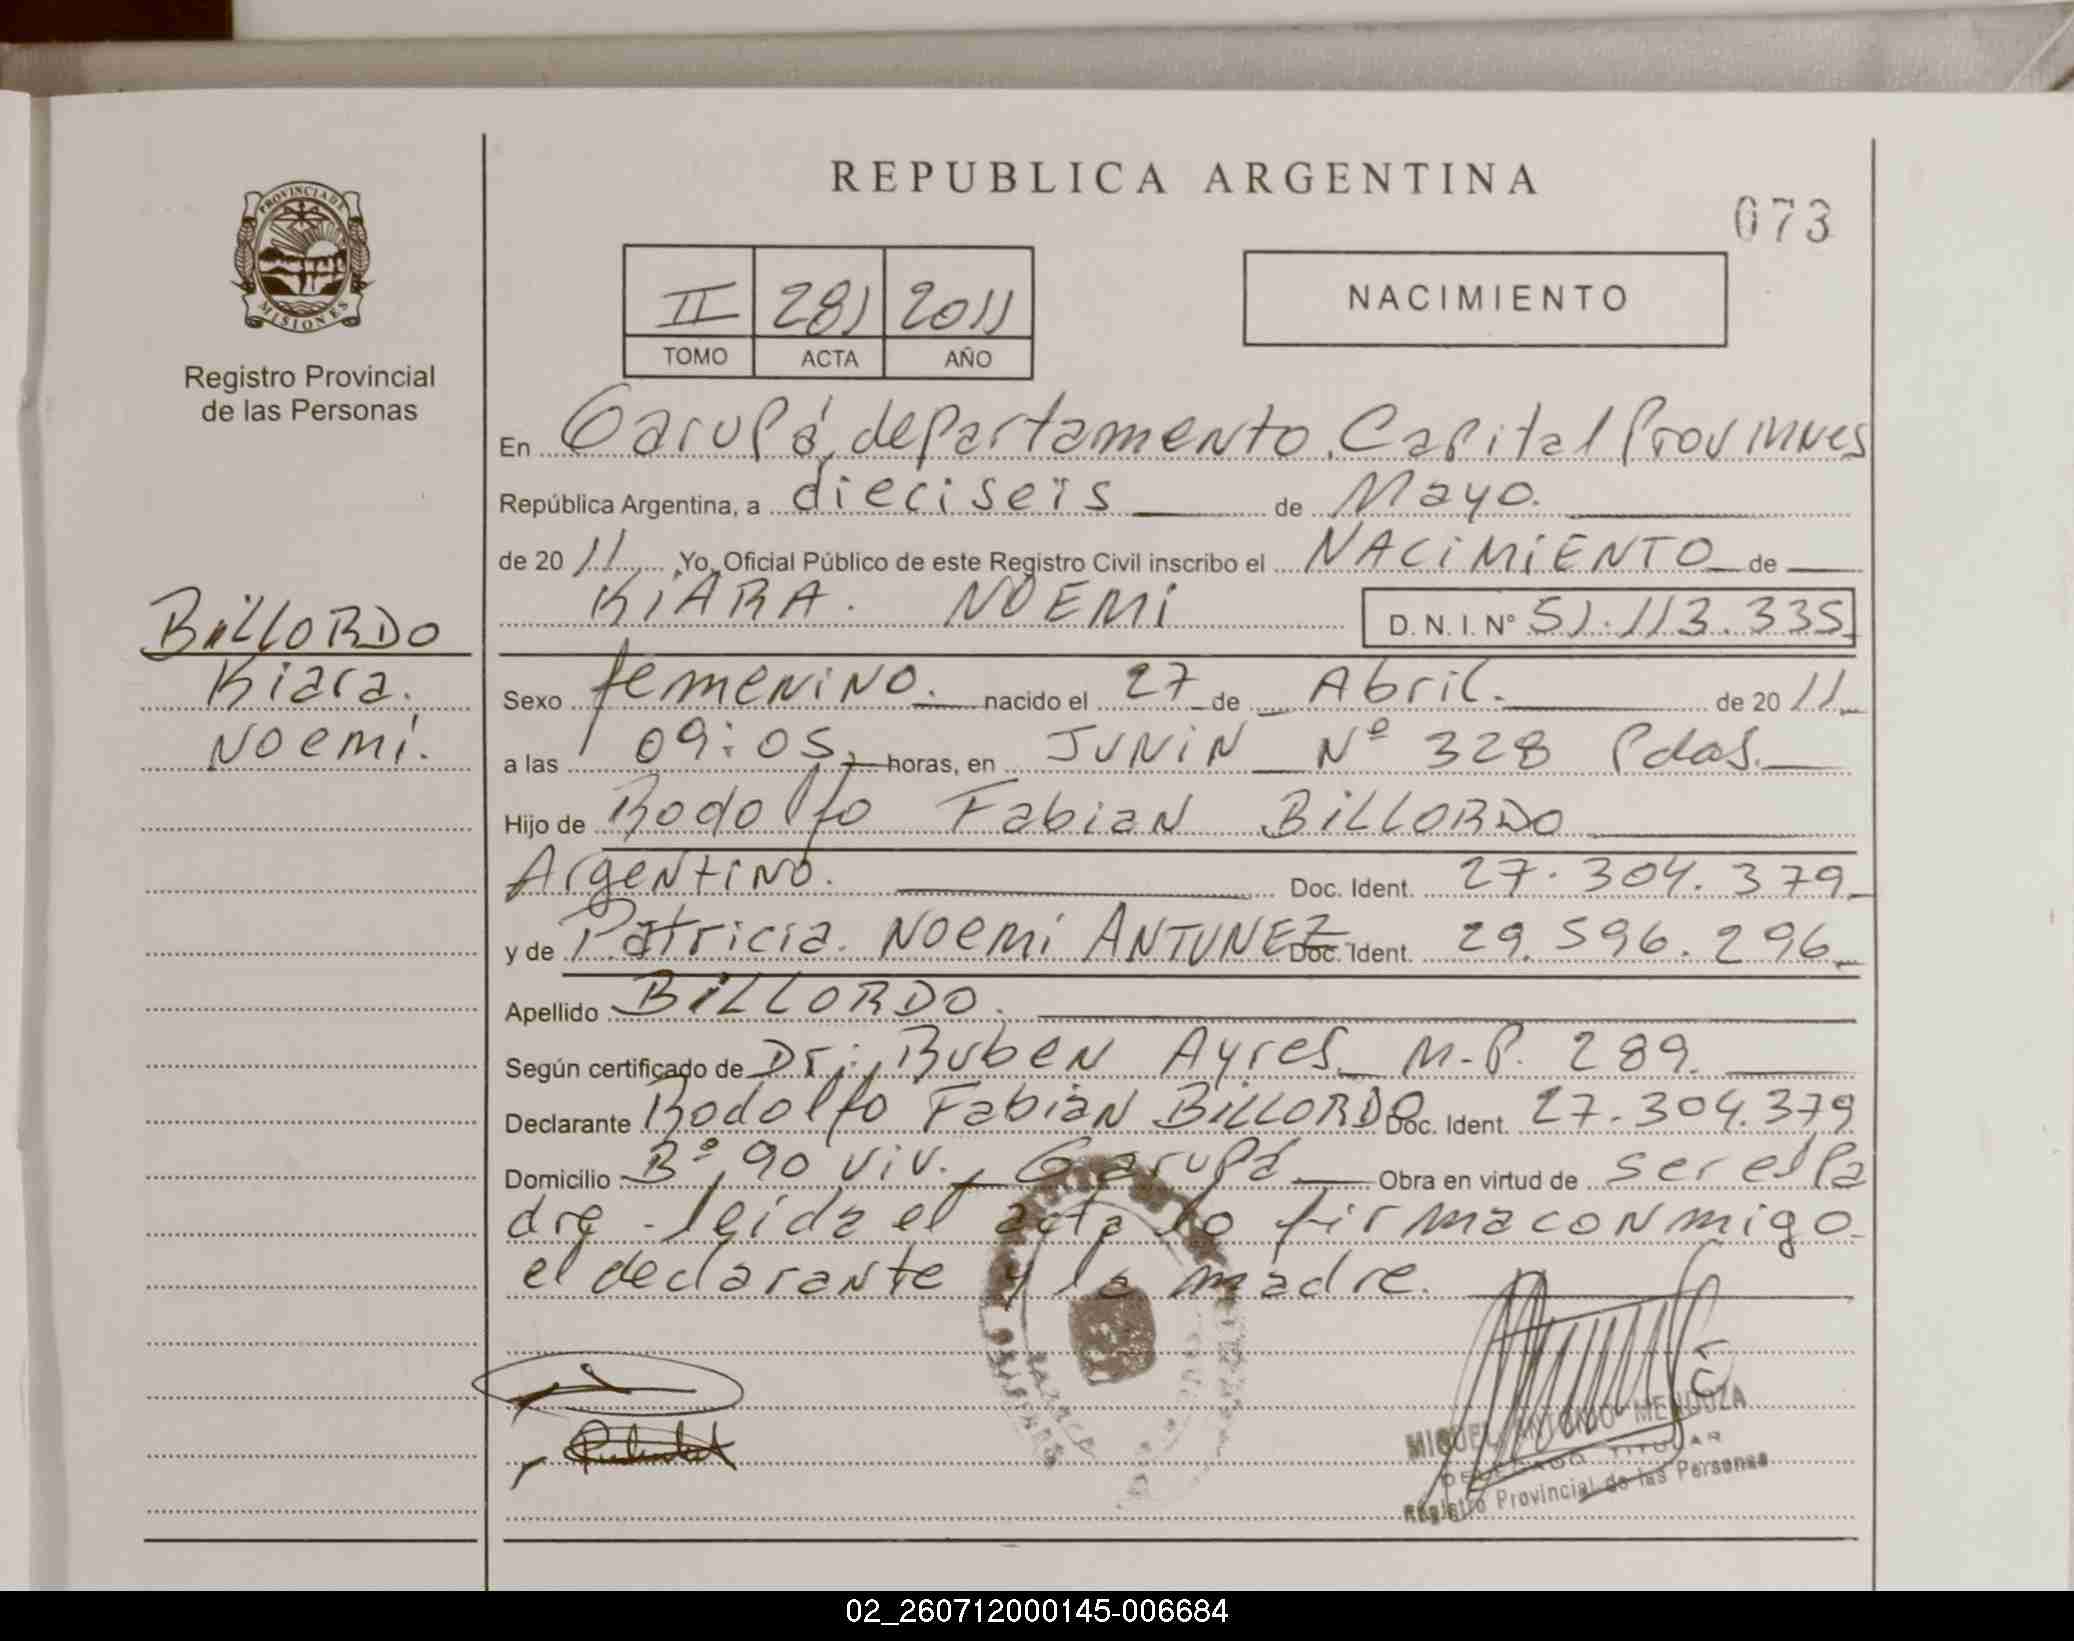 REPUBLICA ARGENTINA
073
PROVINCIA DE
MISIONES
Registro Provincial
de las Personas
II 281 2011
TOMO ACTA AÑO
NACIMIENTO
En Garupá, departamento Capital Prov Mnes
República Argentina, a dieciseis de Mayo.
de 20 11 Yo, Oficial Público de este Registro Civil inscribo el NACIMIENTO de
KIARA. NOEMI D. N. I. N° 51.113.335
BILLORDO
Kiara.
Noemi.
Sexo femenino. nacido el 27 de Abril. de 20 11
a las 09:05 horas, en JUNIN Nº 328 Pdas.
Hijo de Rodolfo Fabian BILLORDO
Argentino. Doc. Ident. 27.304.379
y de Patricia. Noemi ANTUNEZ Doc. Ident. 29.596.296
Apellido BILLORDO.
Según certificado de Dr: Ruben Ayres M.P. 289.
Declarante Rodolfo Fabian BILLORDO Doc. Ident. 27.304.379
Domicilio Bº 90 viv. Garupá Obra en virtud de ser el Pa
dre - leida el acta lo firma conmigo
el declarante y la madre.
MIGUEL ANTONIO MENDOZA
DELEGADO TITULAR
Registro Provincial de las Personas
02_260712000145-006684